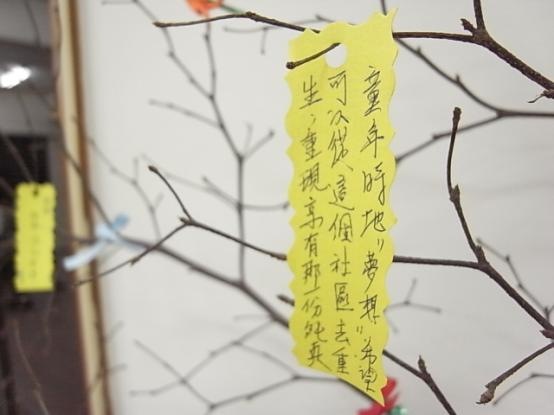 童年時地"夢想"希望
可以從這個社區去重
生，重現享有那一份純真